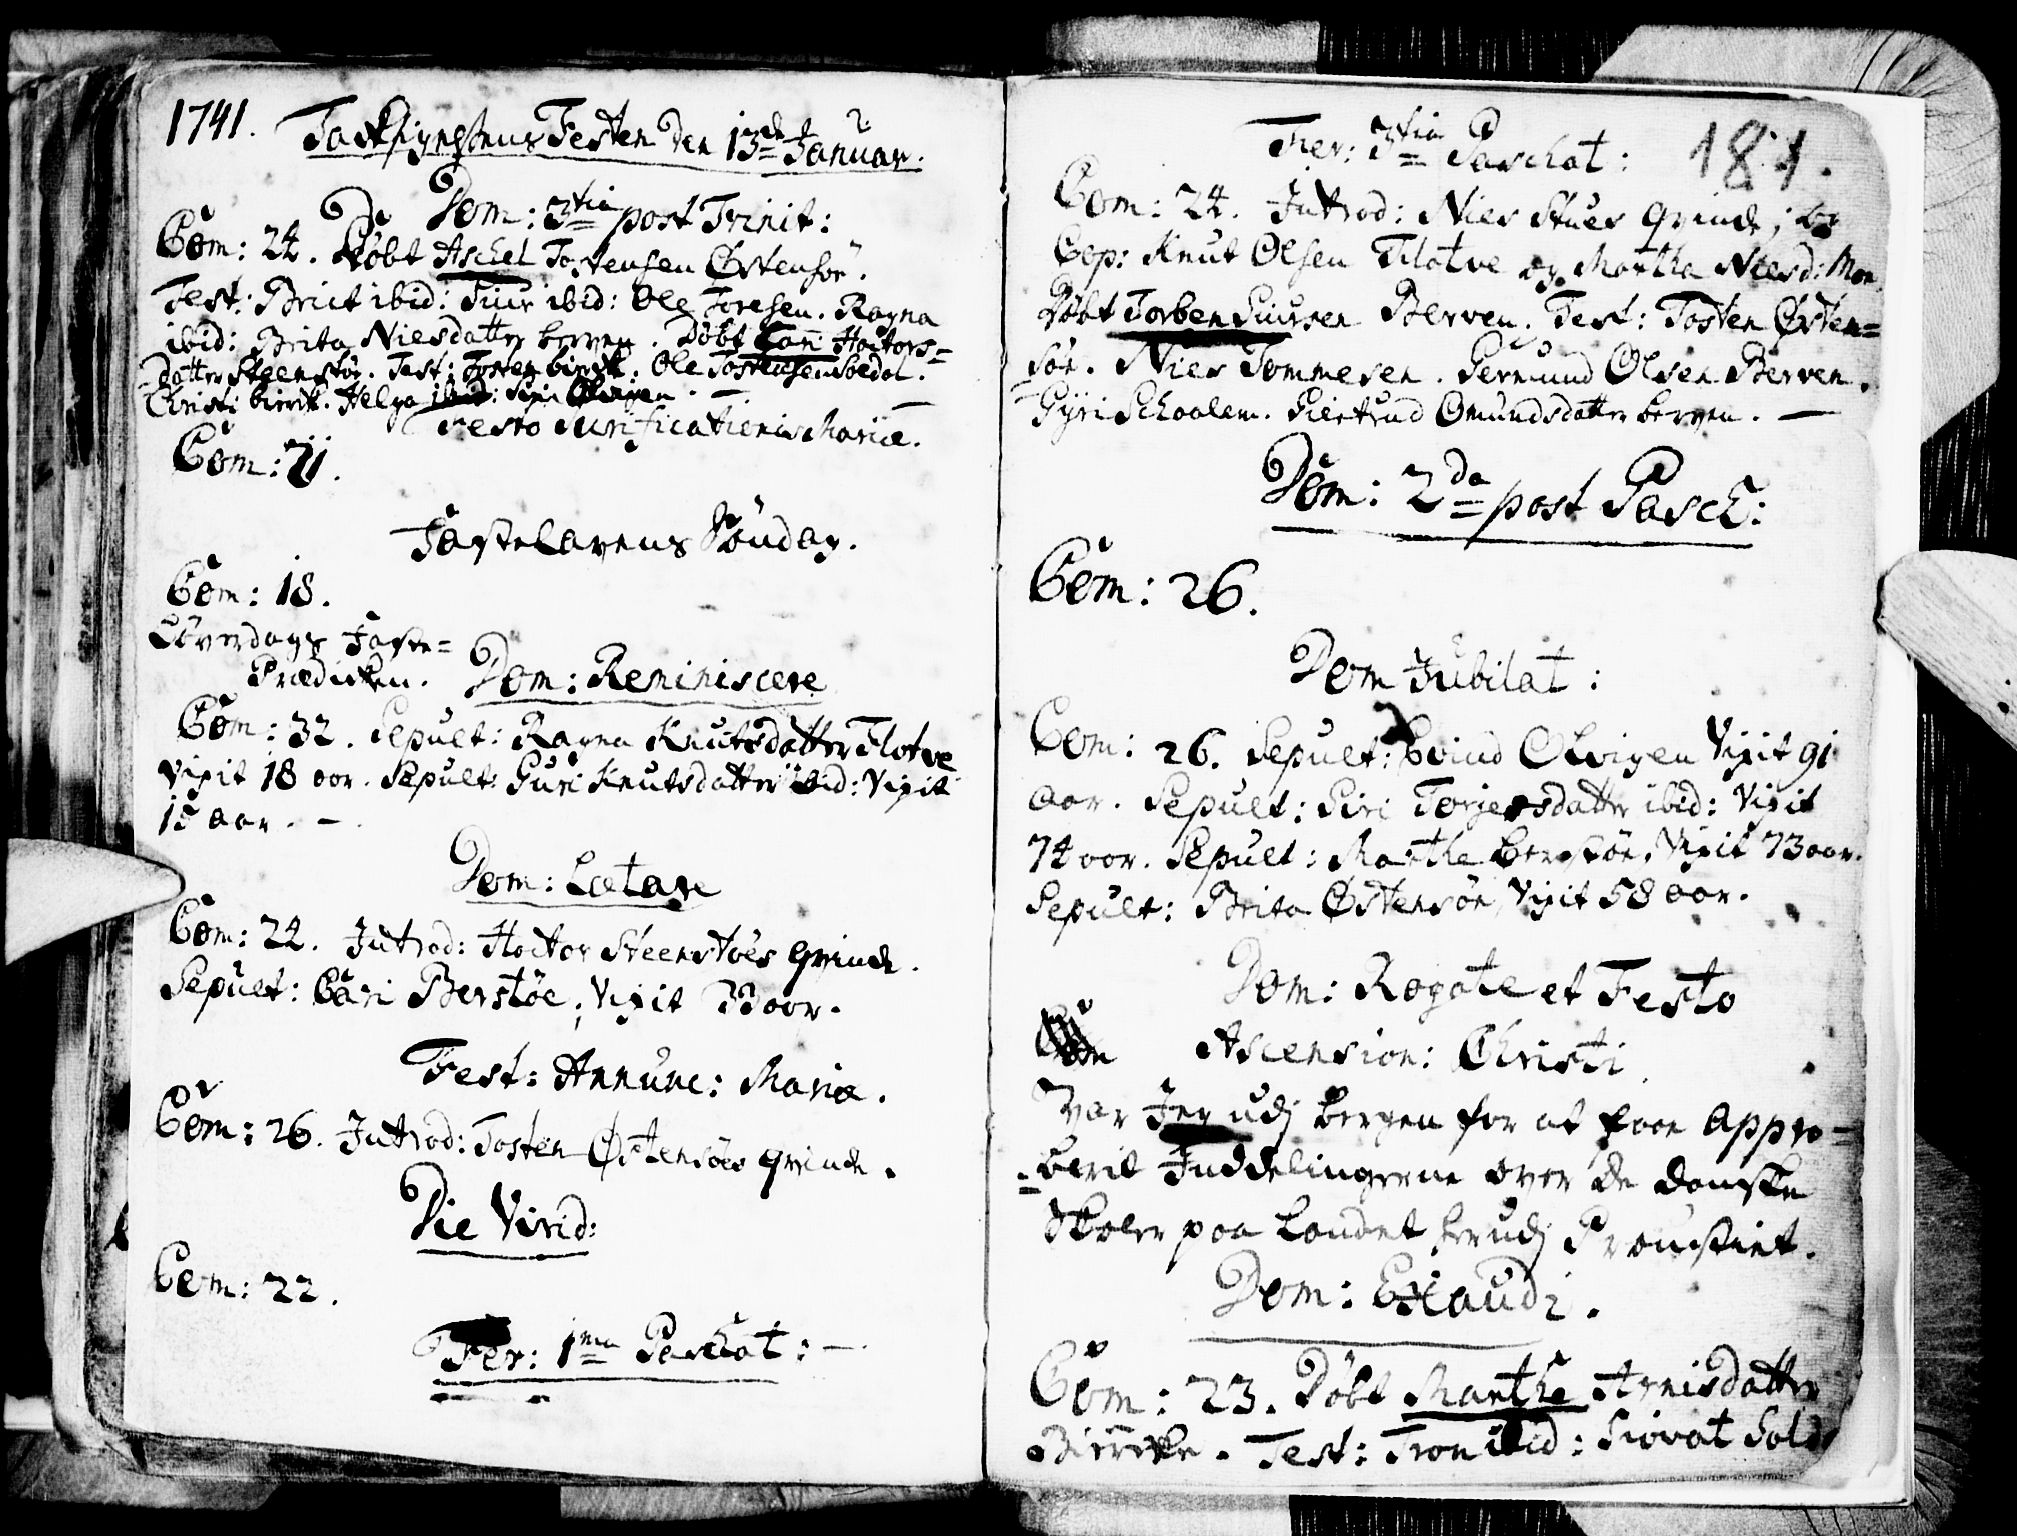 1741. Tacksigelsens Festen den 13de Januar.
Dom: 3tia post Trinit:
Com: 24. Døbt Aschel Tostensen Østensøe.
Test: Brict ibid: Siur ibid: Ole Toresen. Ragna
ibid: Brita Niesdatter berven. Døbt Cari Hactors=
Datter Steenstøe. Test: Tosten birck. Ole Tostensen Soedal.
Christi birck. Helga ibid: Siri Øvigen. —
Festo Purificationis Mariæ.
Com: 21.
Fastelavens Søndag.
Com: 18.
Løverdags Faste=
Prædicken. Dom: Reminiscere
Com: 32. Sepult: Ragna Knutsdatter Flotve
Vixit 18 aar. Sepult: Guri Knutsdatter ibid: Vixit
15 aar. —.
Dom: Lætare
Com: 24. Introd: Hactor Steenstøes qvinde.
Sepult: Cari Berstöe, Vixit 33 aar.
Fest: Annunc: Mariæ.
Com: 26. Introd: Tosten Østensöes qvinde.
Die Virid:
Com: 22.
Fer: 1ma Paschat: —.
181.
Fer: 3tia Paschat:
Com: 24. Introd: Nies Stues qvinde;
Cop: Knut Olsen Flotve og Martha Niesd: Moe
Døbt Torben Siursen Berven. Test: Tosten Østen=
söe. Nies Tommesen. Germund Olsen Berven.
Gyri Schaalem. Giertrud Omundsdatter berven. —
Dom: 2da post Pasch:
Com: 26.
Dom Jubilat:
Com: 26. Sepult: Evind Olvigen Vixit 91
aar. Sepult: Siri Torgersdatter ibid: Vixit
74 aar. Sepult: Marthe berstöe, Vixit 73 aar.
Sepult: Brita Østensöe, Vixit 58 aar.
Dom: Rogate et Festo
Ascension: Christi.
Var Jeg udj bergen for at faae appro=
=berit Inddelingerne over de danske
Skoler paa Landet herudj Proustiet.
Dom: Exaudi.
Com: 23. Døbt Marthe Arnisdatter
Biercke. Test: Tron ibid: Siovat Sold